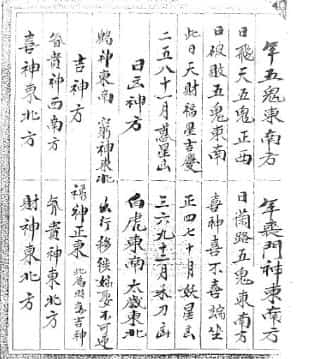 年五鬼東南方
年喪門神東南方
日飛天五鬼正西
日闌路五鬼東南方
日破敗五鬼東南
喜神喜不喜端坐
此日天財福星吉慶
正四七十月妖星山
二五八十一月惑星山
三六九十二月禾刀山
日凶神方
白虎東南 太歲東北
鶴神東南 窮神東北
出行移徙
不可
吉神方
福神正東
此為
吉神
貴神西南方
貴神東北方
喜神東北方
財神東北方